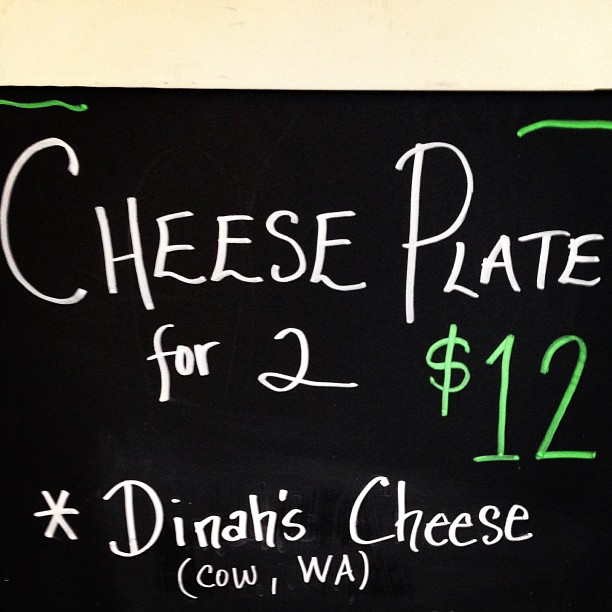 CHEESE PLATE
for 2 $12
* Dinah's Cheese
(COW, WA)